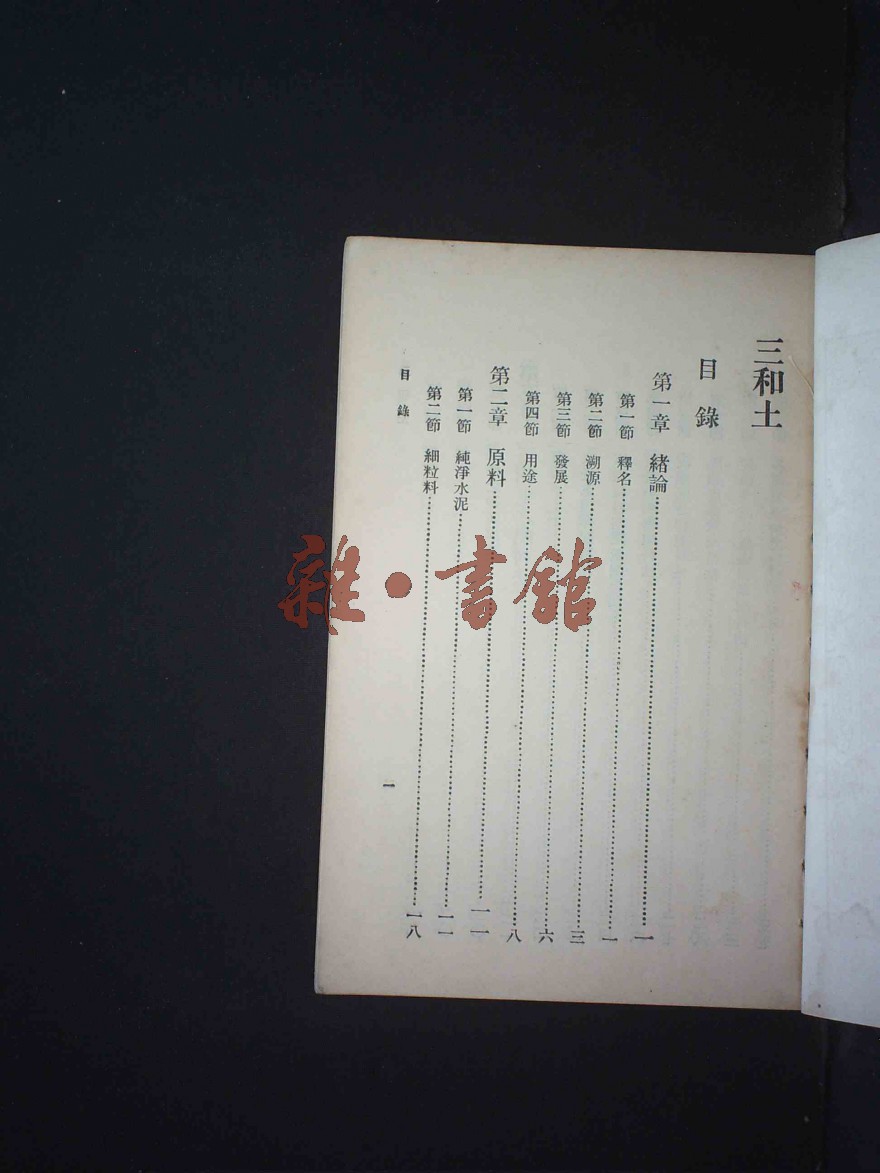 三和土
目錄
第一章 緒論……一
第一節 釋名……一
第二節 溯源……三
第三節 發展……六
第四節 用途……八
第二章 原料……一一
第一節 純淨水泥……一一
第二節 細粒料……一八
目錄
一
雜·書館